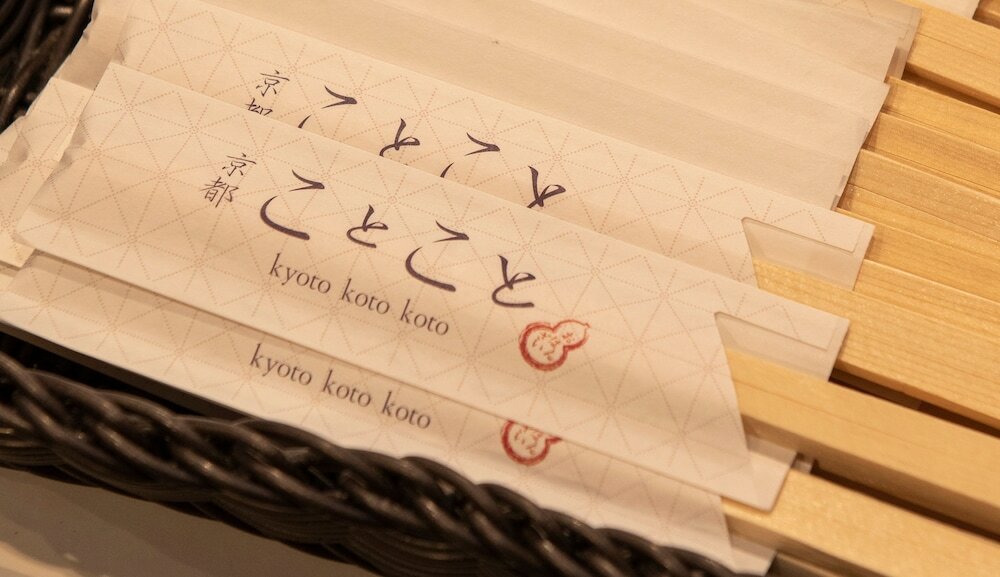 京都
ことこと
京都
ことこと
kyoto koto koto
kyoto koto koto